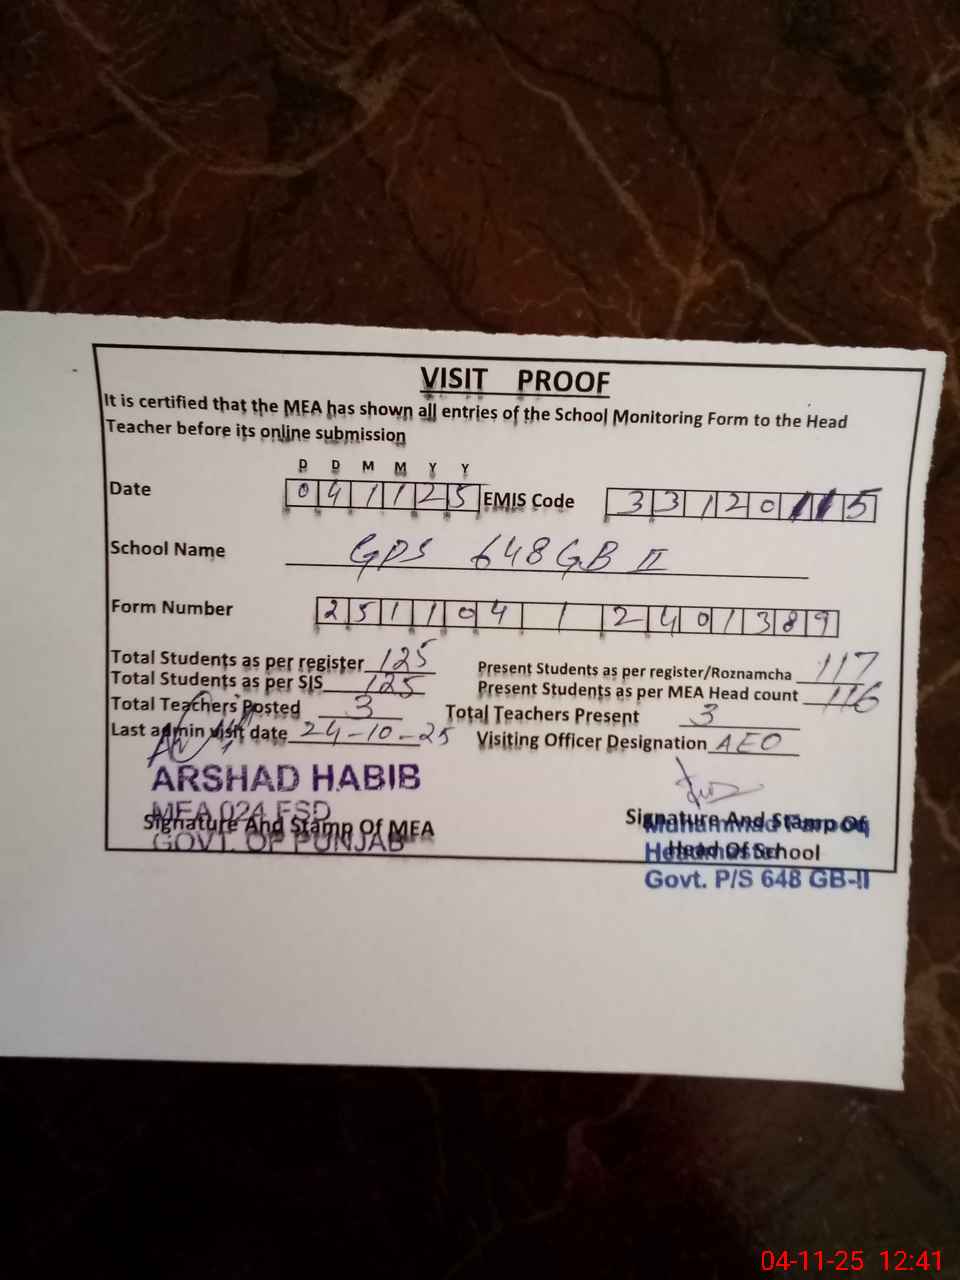 VISIT PROOF
It is certified that the MEA has shown all entries of the School Monitoring Form to the Head
Teacher before its online submission
D D M M Y Y
Date 0 4 1 1 2 5 EMIS Code 3 3 1 2 0 1 1 5
School Name GPS 648 GB II
Form Number 2 5 1 1 0 4 1 2 4 0 1 3 8 9
Total Students as per register 125 Present Students as per register/Roznamcha 117
Total Students as per SIS 125 Present Students as per MEA Head count 116
Total Teachers Posted 3 Total Teachers Present 3
Last admin visit date 24-10-25 Visiting Officer Designation AEO
ARSHAD HABIB
MEA 024 FSD
GOVT. OF PUNJAB
Signature And Stamp Of MEA
Signature And Stamp Of
Head Of School
Muhammad
Headmaster
Govt. P/S 648 GB-II
04-11-25 12:41